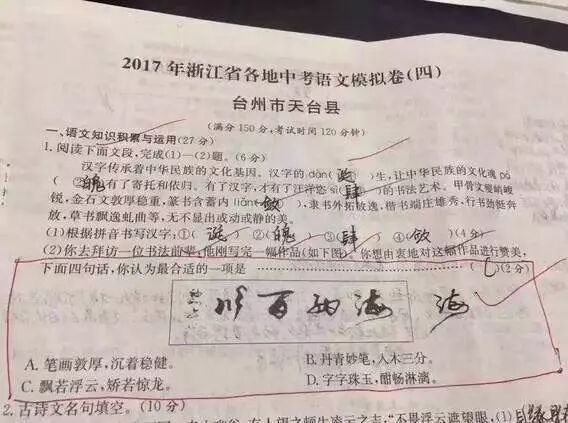 2017年浙江省各地中考语文模拟卷(四)
台州市天台县
(满分150分,考试时间120分钟)
一、语文知识积累与运用(27分)
1.阅读下面文段,完成(1)—(2)题。(6分)
汉字传承着中华民族的文化基因。汉字的dàn( 诞 )生,让中华民族的文化魂pò
( ②魄 )有了寄托和依归。有了汉字,才有了汪洋恣sì( 肆 )的书法艺术。甲骨文瘦峭峻
锐,金石文敦厚稳重,篆书含蓄内liǎn( 敛 ),隶书外拓放逸,楷书端庄雄秀,行书游挺奔
放,草书飘逸虬曲等,无不显出或动或静的美。
(1)根据拼音书写汉字:①( 诞 ) ②( 魄 ) ③( 肆 ) ④( 敛 )(4分)
(2)你去拜访一位书法前辈,他刚写完一幅作品(如下图),你想由衷地对这幅作品进行赞美,
下面四句话,你认为最合适的一项是 ( C )(2分)
川百纳海 海
A.笔画敦厚,沉着稳健。 B.丹青妙笔,入木三分。
C.飘若浮云,矫若惊龙。 D.字字珠玉,酣畅淋漓。
2.古诗文名句填空。(10分)
"不畏浮云遮望眼,(1)